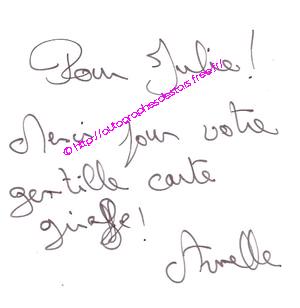 Pour Julie!
Merci pour votre
gentille carte
girafe!
Armelle
© http://autographesdestars.free.fr/